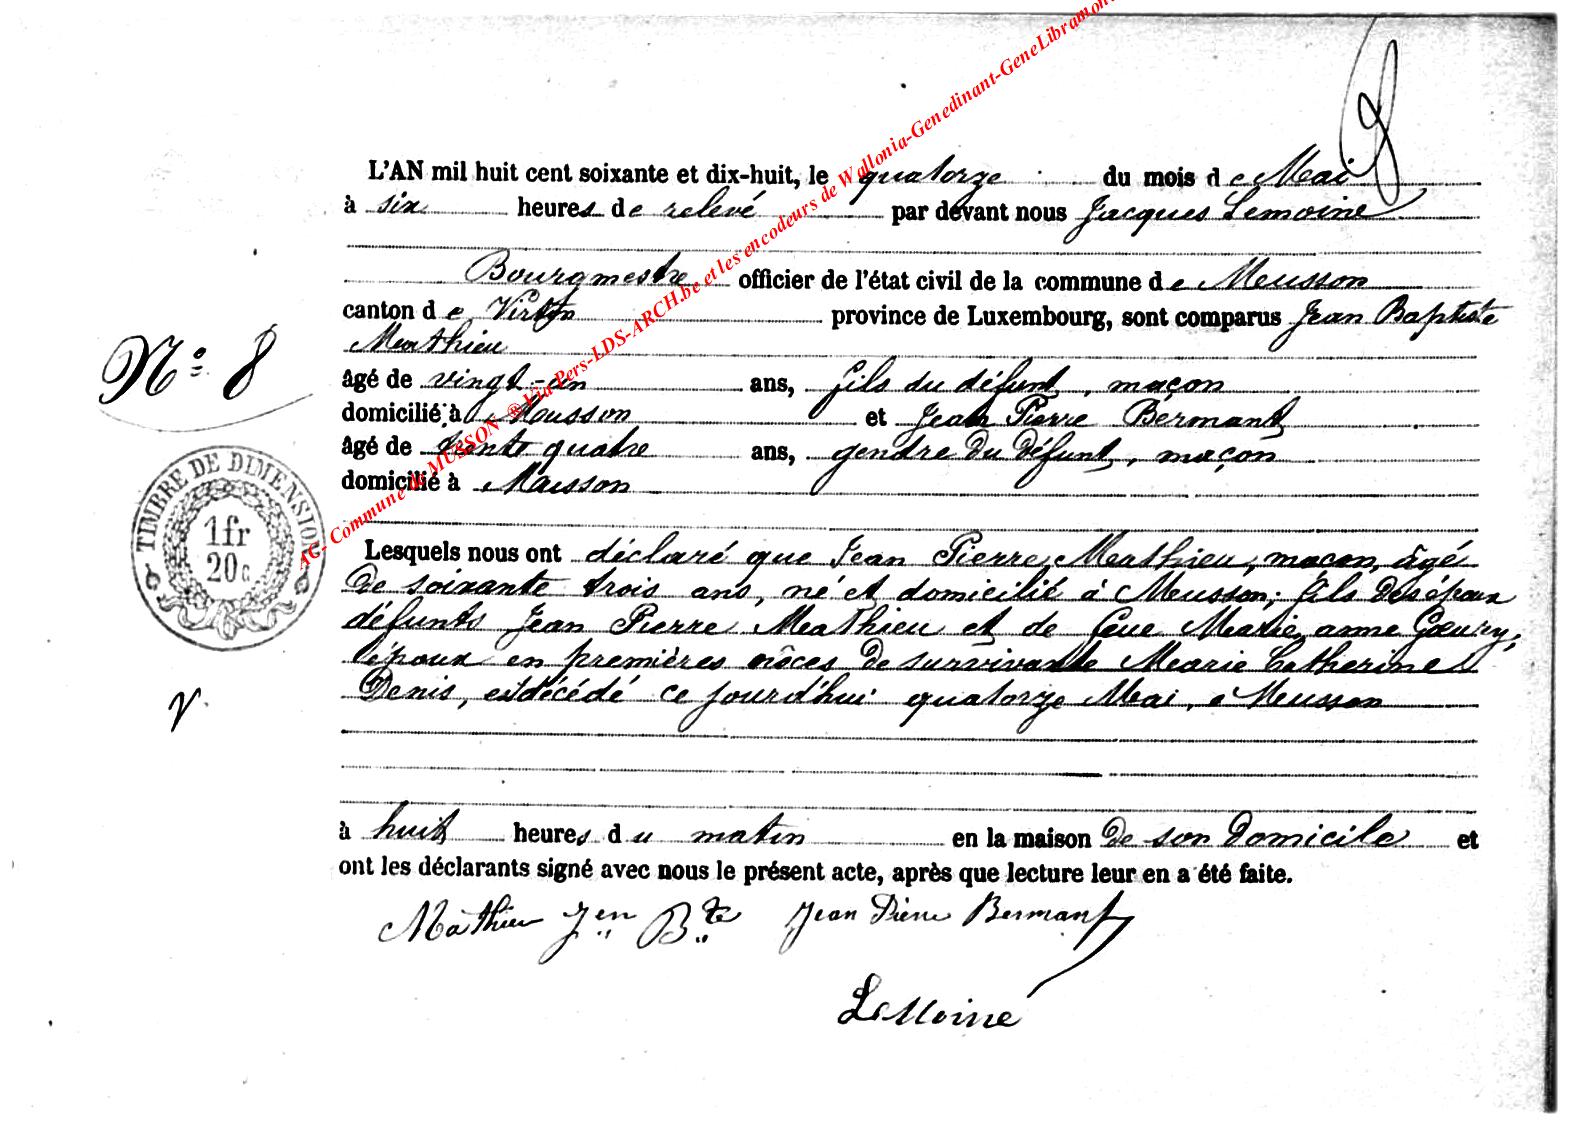 8
L'AN mil huit cent soixante et dix-huit, le quatorze du mois de Mai
à six heures de relevé par devant nous Jacques Lemoine
Bourgmestre officier de l'état civil de la commune de Musson
canton de Virton province de Luxembourg, sont comparus Jean Baptiste
Mathieu
N° 8
âgé de vingt-un ans, fils du défunt, maçon
domicilié à Musson et Jean Pierre Bermant
âgé de trente quatre ans, gendre du défunt, maçon
domicilié à Musson
TIMBRE DE DIMENSION
1fr
20c
Lesquels nous ont déclaré que Jean Pierre Mathieu, maçon, âgé
de soixante trois ans, né et domicilié à Musson; fils des époux
défunts Jean Pierre Mathieu et de feue Marie anne Gœury,
époux en premières nôces de survivante Marie Catherine
Denis, est décédé ce jourd'hui quatorze Mai, à Musson
V.
à huit heures du matin en la maison de son domicile et
ont les déclarants signé avec nous le présent acte, après que lecture leur en a été faite.
Mathieu Jen Bte Jean Pierre Bermant
Lemoine
AG- Commune de MUSSON ® Via Pers-LDS-ARCH.be et les encodeurs de Wallonia-Genedinant-GeneLibramont